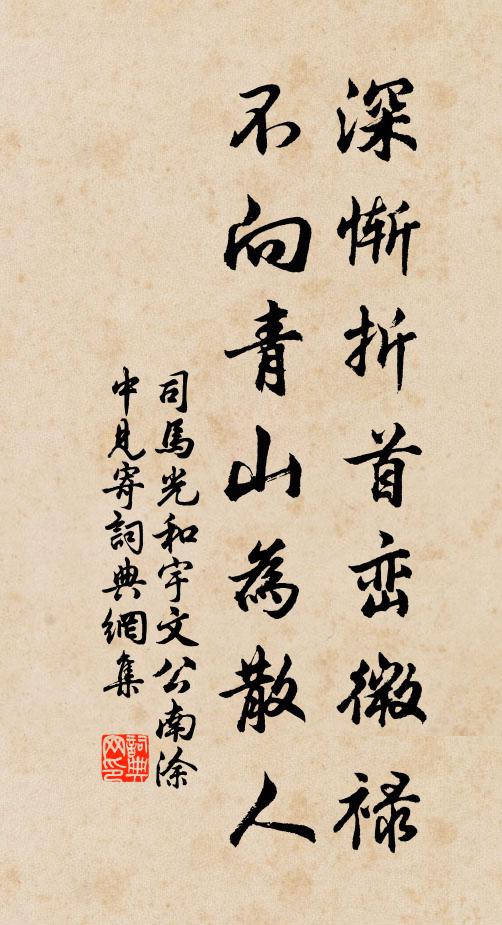 深惭折首峦微禄
不向青山為散人
司馬光和宇文公南涂
中見寄詞典網集
詞典网印